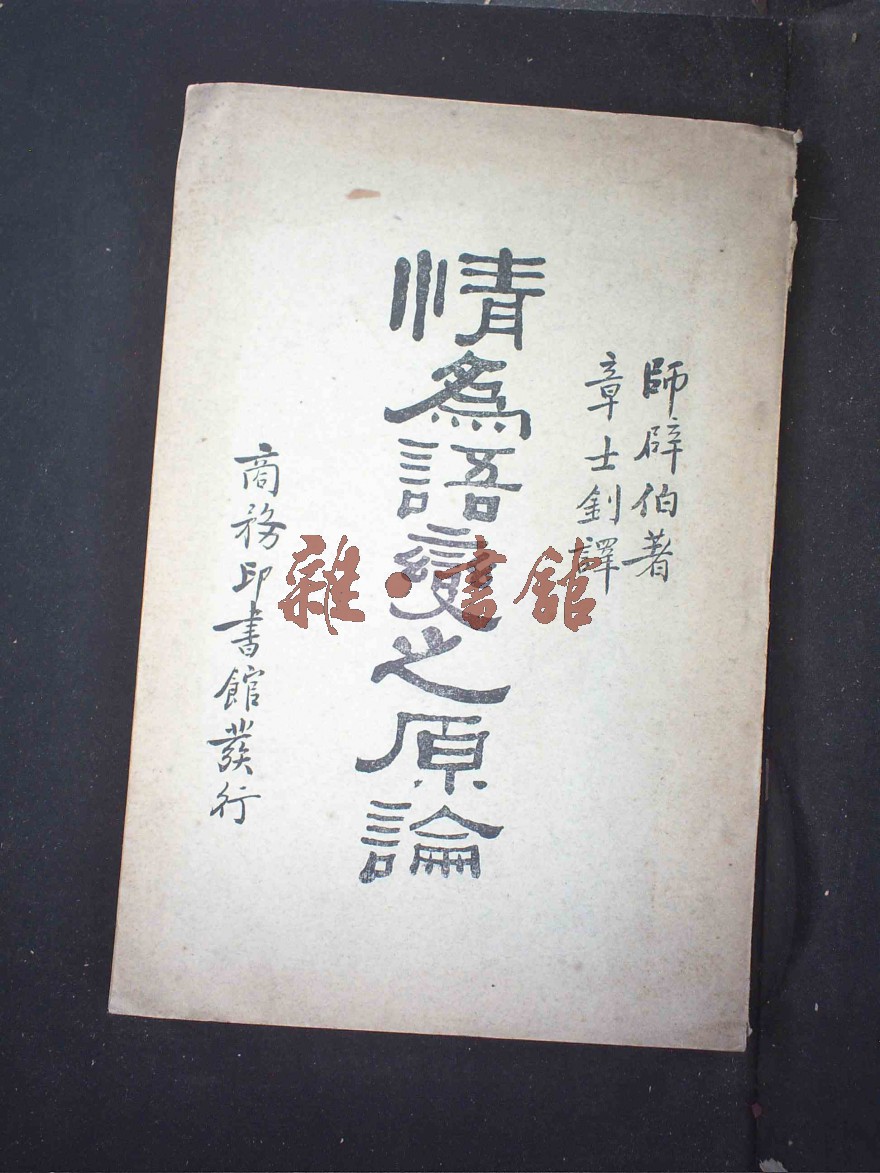 師辟伯著
章士釗譯
情為語變之原論
商務印書館發行
雜·書館